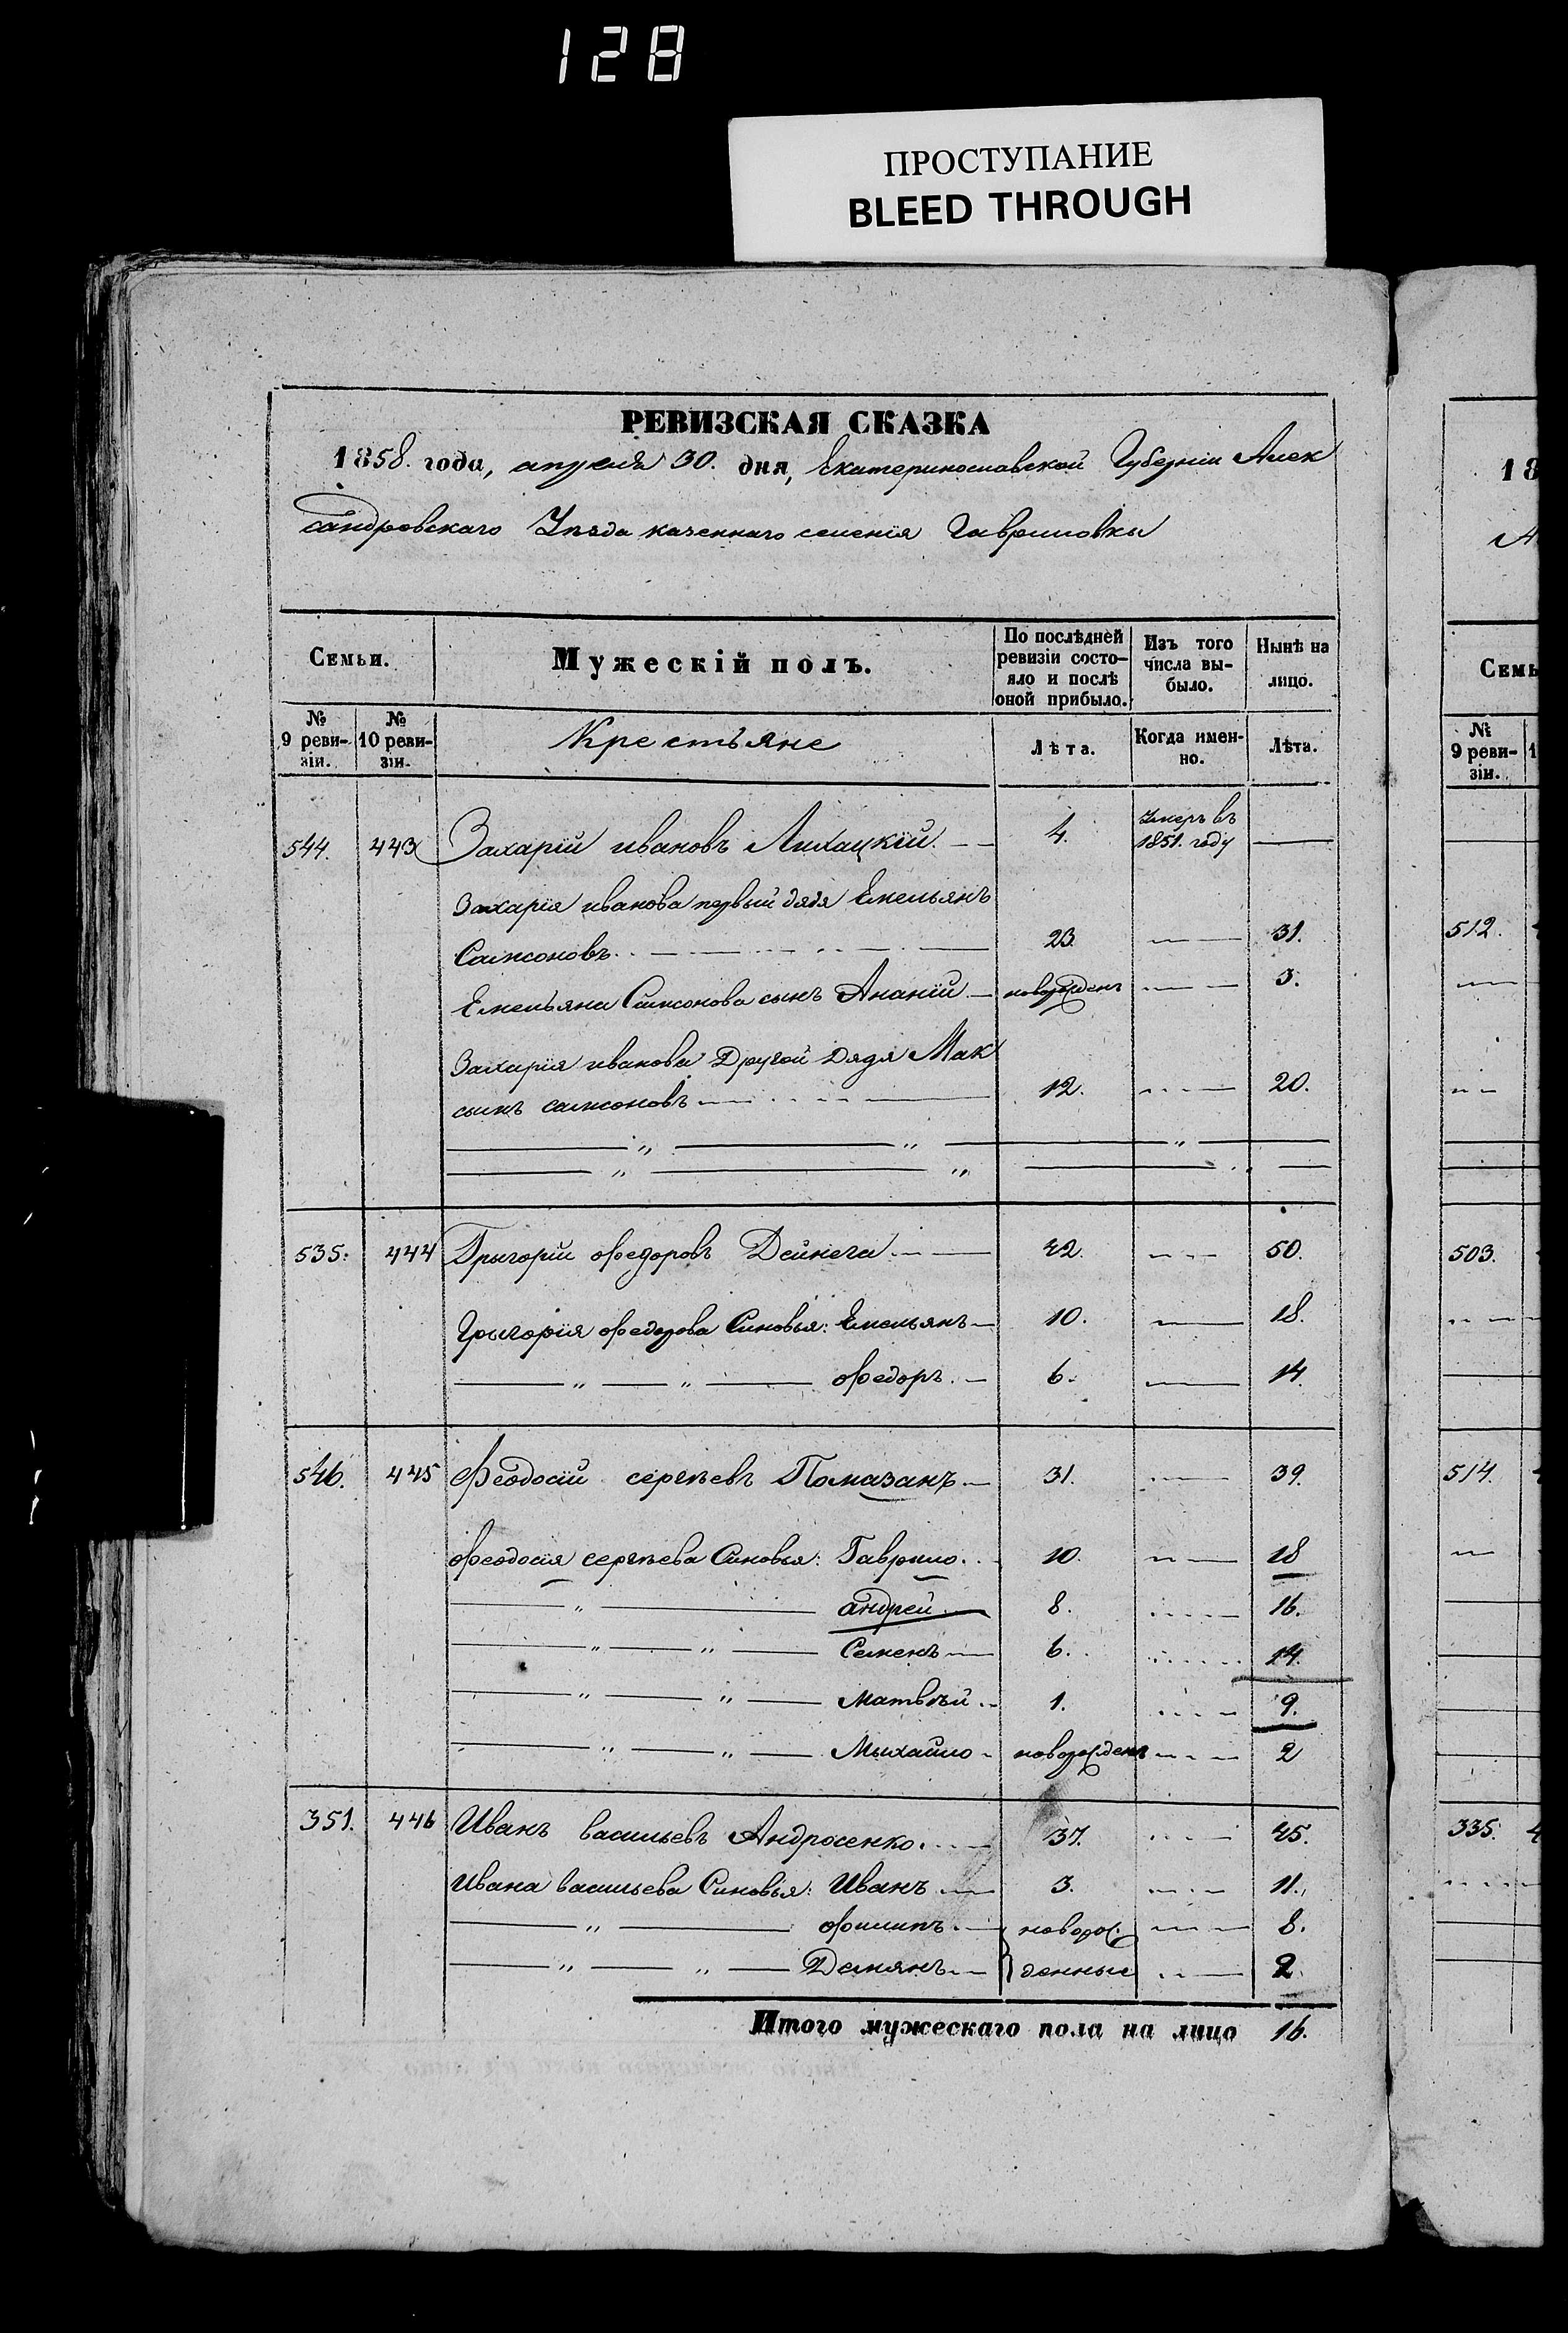 128
ПРОСТУПАНИЕ
BLEED THROUGH
РЕВИЗСКАЯ СКАЗКА
1858. года, апреля 30. дня, Екатеринославской Губерніи Алек
сандровскаго Уѣзда казеннаго селенія Гавриловки
Семьи. Мужескій полъ. По послѣдней ревизіи состо-яло и послѣ оной прибыло. Изъ того числа вы-было. Нынѣ на лицо.
№ 9 реви-зіи. № 10 реви-зіи. Крестьяне Лѣта. Когда имен-но. Лѣта.
544. 443 Захарій ивановъ Лихацкій 4. Умеръ въ 1851. году
Захарія иванова первый дядя Емельянъ
Самсоновъ 23. 31.
Емельяна Самсонова сынъ Ананій новорожденъ 3.
Захарія иванова Другой Дядя Мак
сымъ самсоновъ 12. 20.
535. 444 Грыгорій Федоровъ Дейнега 42. 50.
Грыгорія Федорова Синовья: Емельянъ 10. 18.
" " Федоръ 6. 14.
546. 445 Феодосій сергѣевъ Помазанъ 31. 39.
Феодосія сергѣева Синовья: Гаврыло 10. 18
" андрей 8. 16.
" " Семенъ 6. 14.
" " Матвѣй 1. 9.
" " Мыхайло новорожденъ 2
351. 446 Иванъ васильевъ Андросенко 37. 45.
Ивана васильева Синовья: Иванъ 3. 11.
" Филипъ новорож. 8.
" " Демянъ денные 2.
Итого мужескаго пола на лицо 16.
18
А
Семь
№ 9 реви-зіи. 1
512.
503.
514.
335. 4